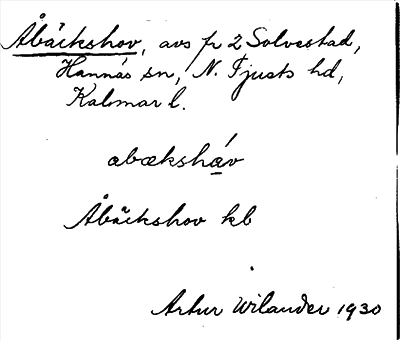 Åbäckshov, avs fr 2 Solvestad,
Hannäs sn, N. Tjusts hd,
Kalmar l.
abækshάv
Åbäckshov kb
Artur Wilander 1930